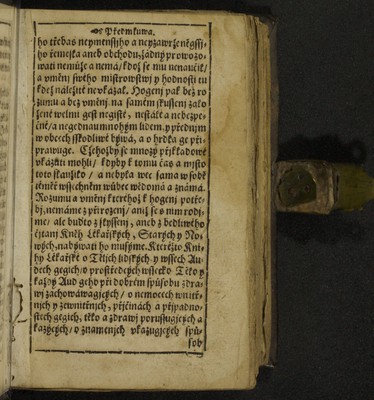 Předmluwa.
ho třebas neymenssjho a neyzawrženěgssj-
ho řemesla aneb obchodu/žádný prowozo-
wati nemůže a nemá/ kdož se mu nenaučil/
a vměnj swého mistrowstwj y hodnosti tu
kdež náležité neukázal. Hogenj pak bez ro-
zumu a bez vměnj/ na samém skussenj zalo-
žené welmi gest negisté/ nestálé a nebezpe-
čné/a negednau mnohým lidem/y předným
w obcech sskodliwé býwá/ a o hrdla ge při-
prawuge. Čehožby se mnozý přjkladowé
vkázati mohli/ kdyby k tomu čas a mjsto
toto slaužilo/ a nebyla wec sama w sobě
téměř wssechněm wůbec wědomá a známá.
Rozumu a vměnj kteréhož k hogenj potře-
bj/nemáme z přirozenj/ aniž se s njm rodj-
me/ ale budto z slyssenj/ aneb z bedliwého
čjtanj Kněh Lékařských/ Starých y No-
wých/nabýwati ho musýme. Kterežto Kni-
hy Lékařské o Tělich lidských/ y wssech Au-
dech gegich/ o prostředcých wssecko Tělo y
každý Aud geho při dobrém spůsobu zdra-
wj zachowáwagjcých/ o nemocech wnitř-
njch y zewnitřnjch/ přjčinách a přjpadno-
stech gegich/ tělo a zdrawj porussugjcých a
kazýcých/ o znamenjch vkazugjcých spů-
sob